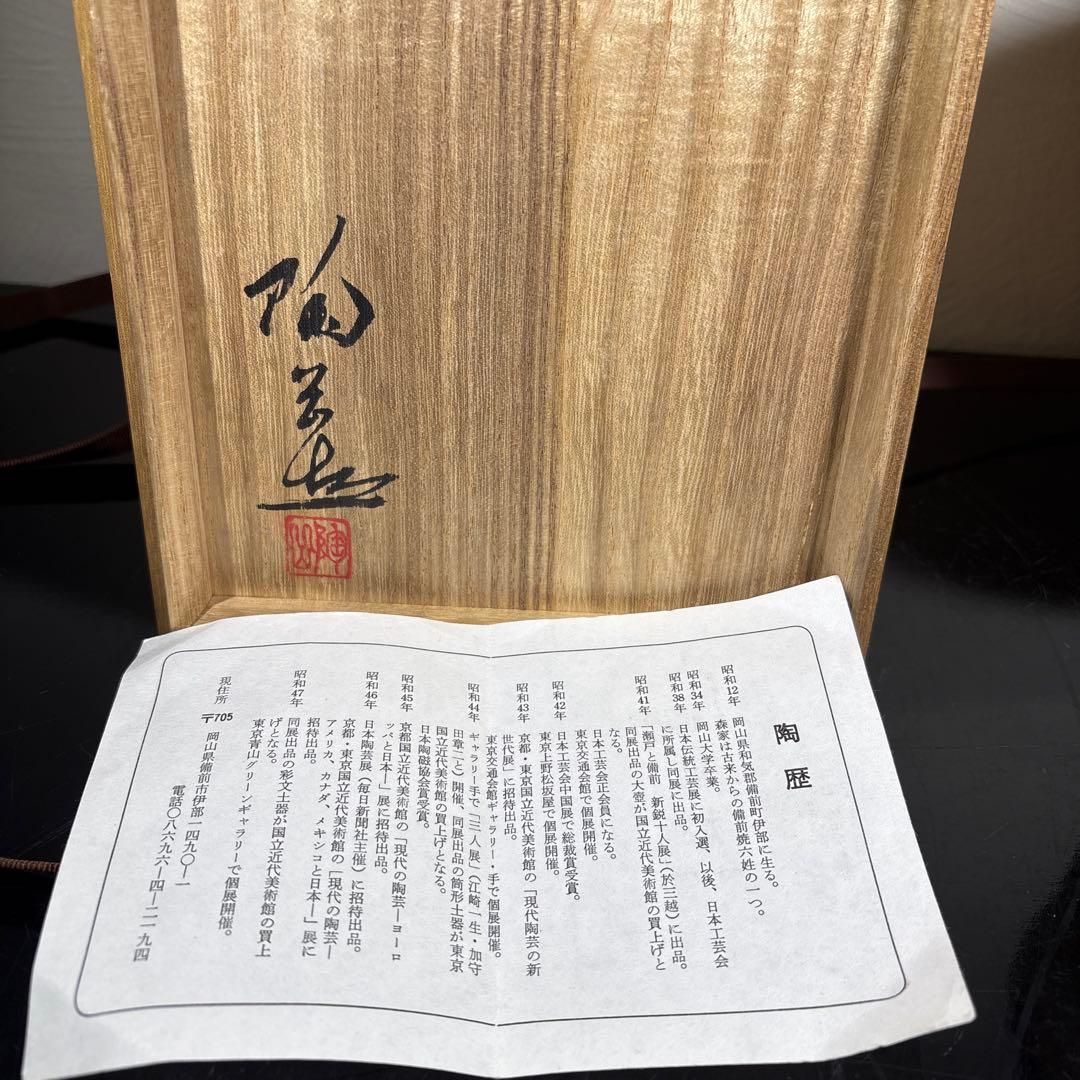 陶岳
陶
歴
昭和12年 岡山県和気郡備前町伊部に生る。
森家は古来からの備前焼六姓の一つ。
昭和34年 岡山大学卒業。
昭和38年 日本伝統工芸展に初入選、以後、日本工芸会
に所属し同展に出品。
昭和41年 「瀬戸と備前 新鋭十人展」(於三越)に出品。
同展出品の大壺が国立近代美術館の買上げと
なる。
日本工芸会正会員になる。
東京交通会館で個展開催。
昭和42年 日本工芸会中国展で総裁賞受賞。
東京上野松坂屋で個展開催。
昭和43年 京都・東京国立近代美術館の「現代陶芸の新
世代展」に招待出品。
東京交通会館ギャラリー・手で個展開催。
昭和44年 ギャラリー手で「三人展」(江崎一生・加守
田章二と)開催、同展出品の筒形土器が東京
国立近代美術館の買上げとなる。
日本陶磁協会賞受賞。
昭和45年 京都国立近代美術館の「現代の陶芸―ヨーロ
ッパと日本―」展に招待出品。
昭和46年 日本陶芸展(毎日新聞社主催)に招待出品。
京都・東京国立近代美術館の「現代の陶芸―
アメリカ、カナダ、メキシコと日本―」展に
招待出品。
昭和47年 同展出品の彩文土器が国立近代美術館の買上
げとなる。
東京青山グリーンギャラリーで個展開催。
現住所 〒705 岡山県備前市伊部一四九〇―一
電話〇八六九六―四―二一九四